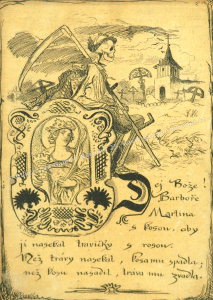 Dej Bože!
Barboře
Martina
s kosou, aby
jí nasekal travičko s rosou.
Než trávy nasekal, kosa mu spadla;
než kosu nasadil, tráva mu zvadla.